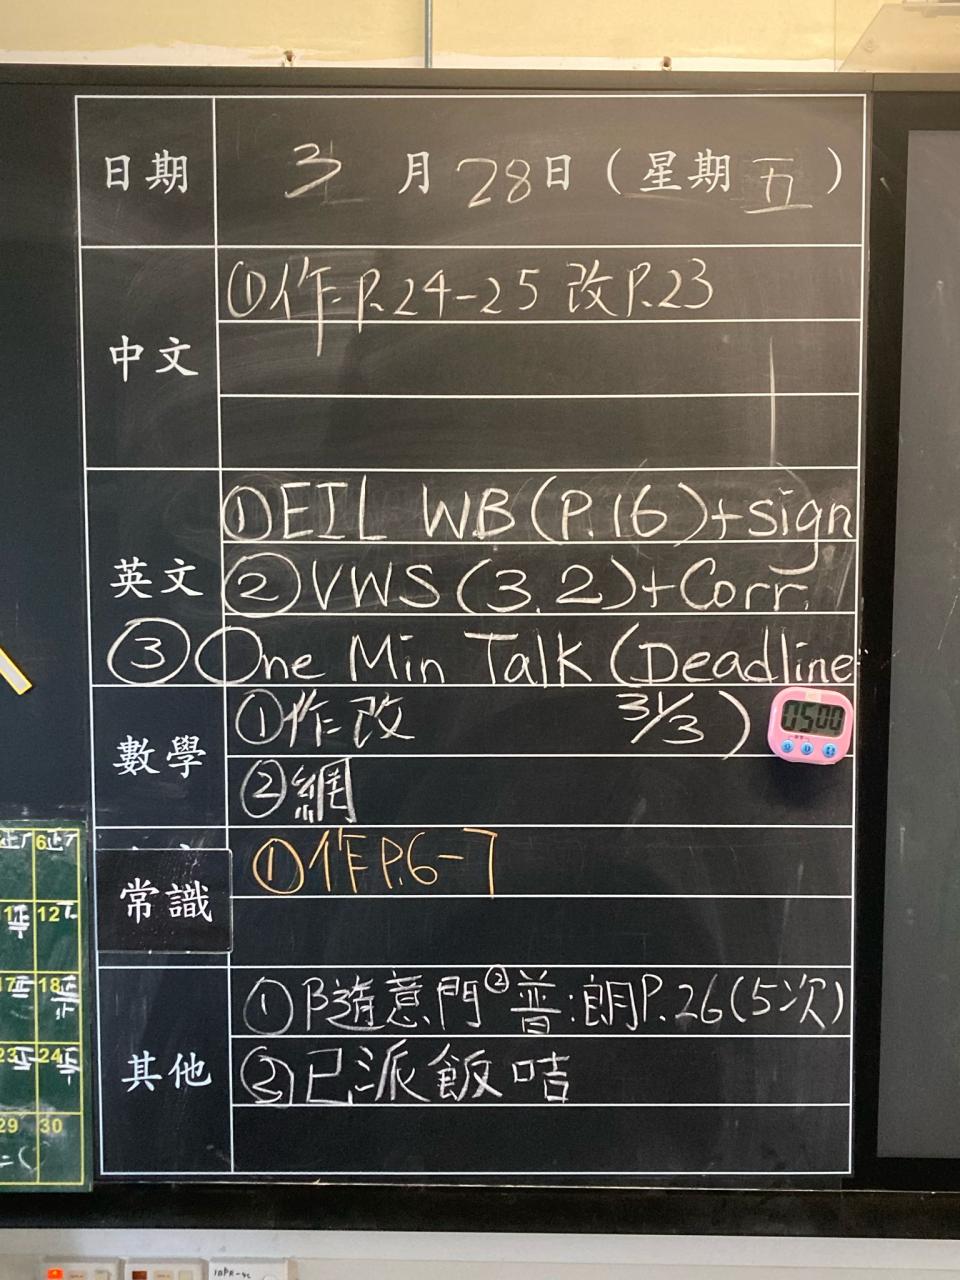 日期 3月28日(星期五)
中文
①作P.24-25 改P.23
英文
①EIL W.B(P.16)+sign
②VWS(3.2)+Corr.
③One Min Talk (Deadline:
31/3)
數學
①作改
②網
常識
①作P.6-7
其他
①隨意門 ②普:朗P.26(5次)
③已派飯咭
0500
6
12
18
23 24
29 30